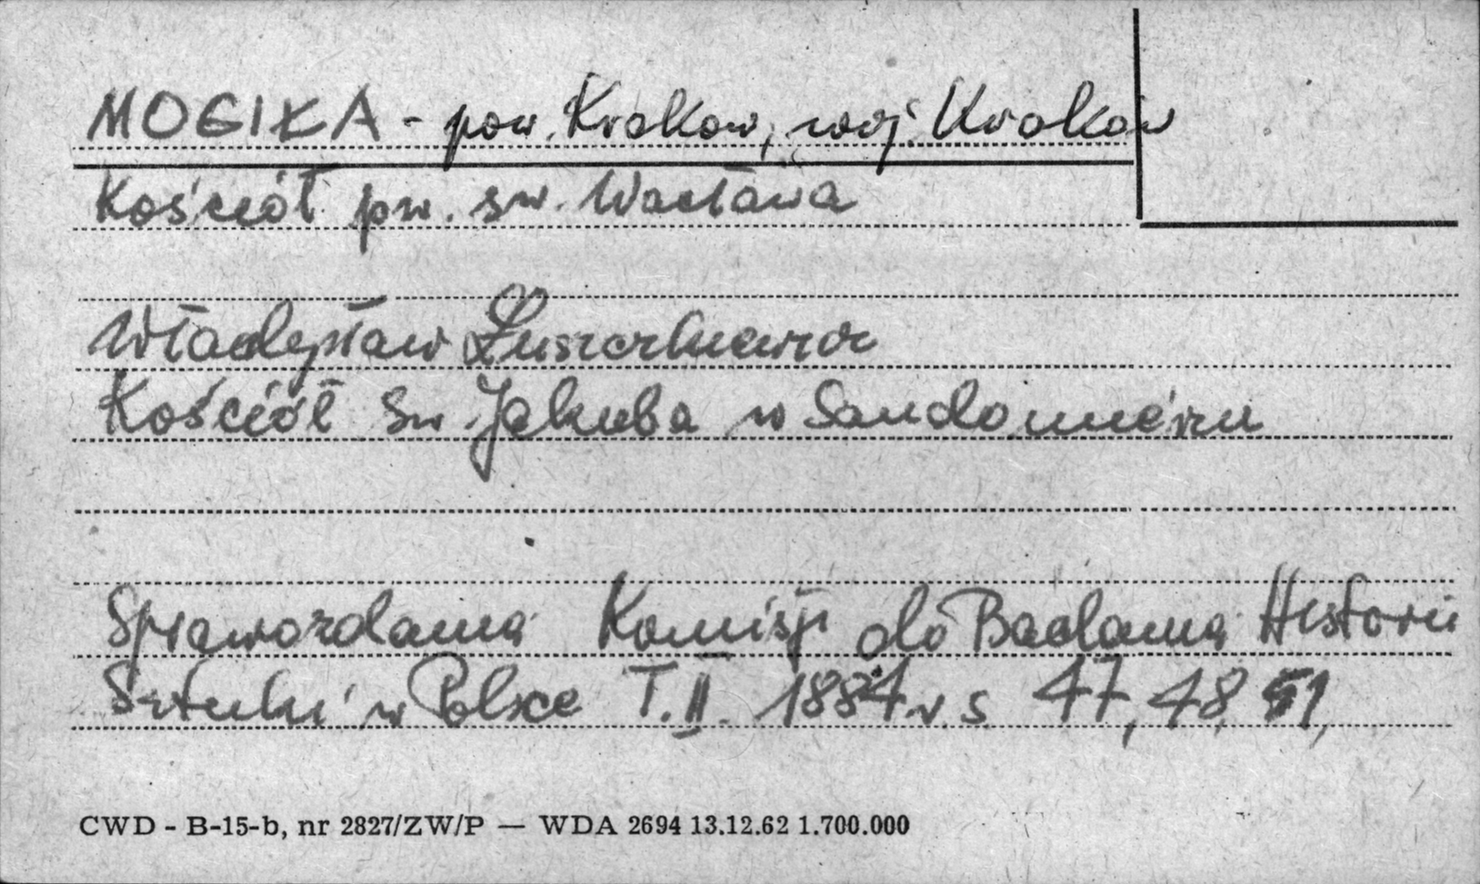 MOGIŁA - pow. Kraków, woj. Kraków
Kościół pw. św. Wacława
Władysław Łuszczkiewicz
Kościół św. Jakuba w Sandomierzu
Sprawozdania Komisji do Badania Historii
Sztuki w Polsce T. II. 1884 r s 47, 48, 51,
CWD - B-15-b, nr 2827/ZW/P — WDA 2694 13.12.62 1.700.000